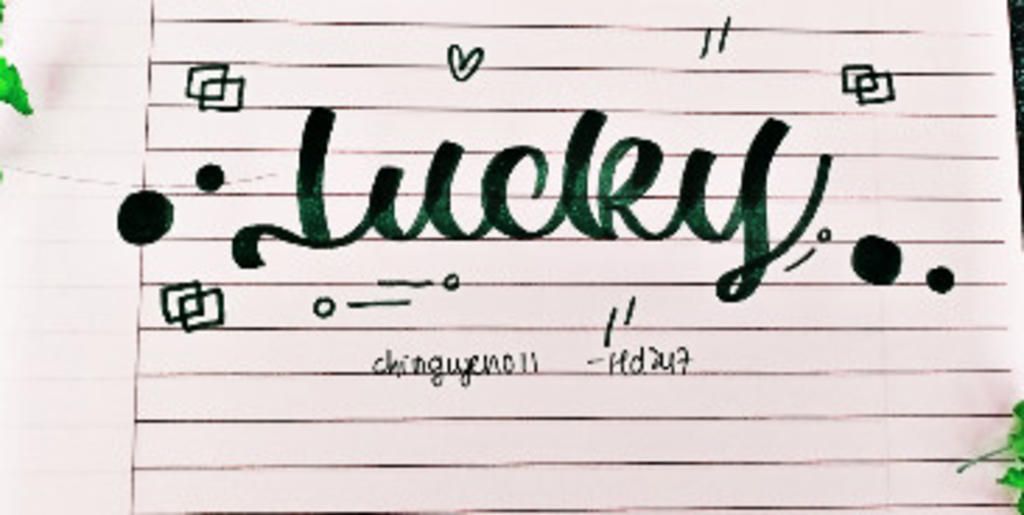 Lucky
chinguyen011 -Hd247